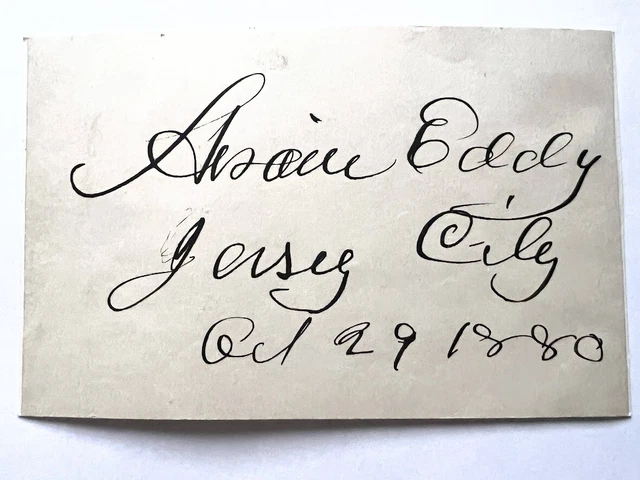 Eddy
Jersey City
Oct 29 1880